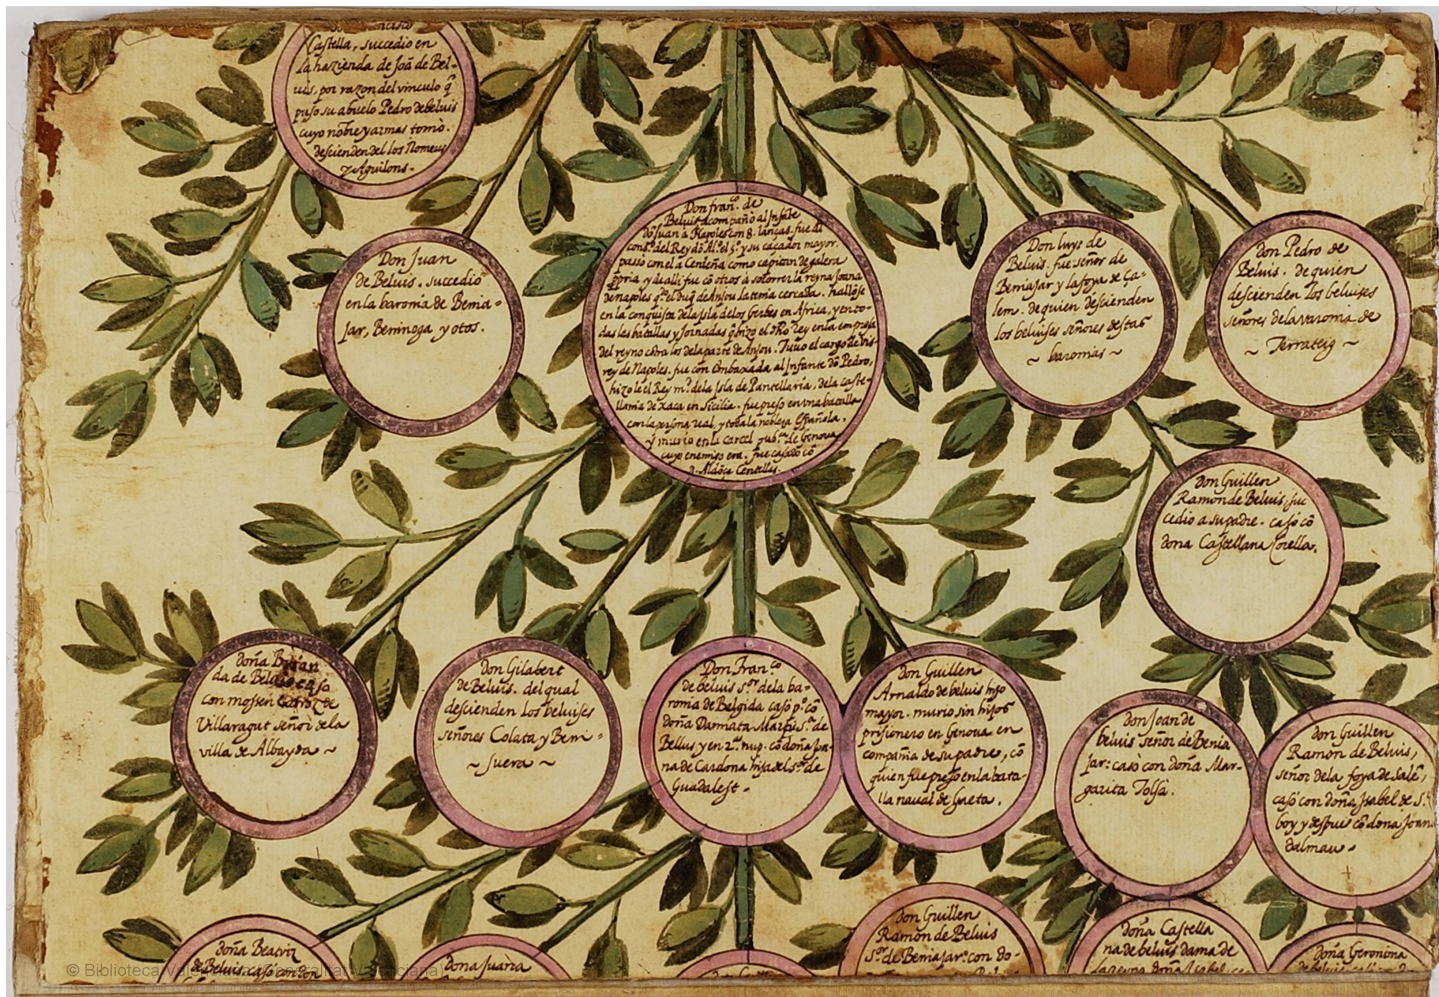 Castella, succedio en
la hazienda de Joã de Bel-
uis, por razon del vinculo q̃
puso su abuelo Pedro de beluis
cuyo nõbre y armas tomò.
descienden del los Romeus
y Aguilons.
Don Juan
de Beluis. succedio
en la baronia de Benia-
Jar, Beninoga y otos.
Don fran.º de
Beluis acompaño al Infãte
dõ Juan à Napoles con 8. lanças. fue dl
cons.º del Rey dõ Al.º el 5.º y su caçador mayor.
passò con el a Cerdeña como capitan de galera
ppria, y de alli fue cõ otros à socorrer la reyna Joana
de napoles q̃ el duq̃ de Anjou la tenia cercada. hallòse
en la conquista de la Isla de los Gerbes en Africa, y en to-
das las batallas y Jornadas q̃ hizo el dho Rey en la empresa
del reyno cõtra los de la parte de Anjou. Tuuo el cargo de vis-
rey de Napoles. fue con embaxada al Infante dõ Pedro,
hizo le el Rey m.d de la Isla de Pantellaria, de la caste-
llania de Xaca en Sicilia. fue preso en vna batalla
con la persona real, y toda la nobleza Española.
y murio en la carcel de Genoua
cuyo enemigo era. fue casado cõ
d. Aldõça Centelles.
Don luys de
Beluis. fue señor de
Beniajar y la foya de Ça-
lem. de quien descienden
los beluises señores destas
~ baronias ~
don Pedro de
Beluis. de quien
descienden los beluises
señores de la varonia de
~ Terrateig ~
don Guillen
Ramon de Beluis, suc
cedio a su padre. casò cõ
dona Castellana Corella.
doña Brian
da de Beluis casò
con mossen Carroz de
Villaragut señor de la
villa de Albayda ~
Don Gilabert
de Beluis. del qual
descienden los beluises
señores Colata y Beni-
~ suera ~
Don Fran.co
de beluis s.or de la ba-
ronia de Belgida casò p.º cõ
doña Damiata Marti s.ra de
Bellus y en 2.as nup. cõ doña Jua-
na de Cardona hija del s.or de
Guadalest-
don Guillen
Arnaldo de beluis hijo
mayor. murio sin hijos
prisionero en Genoua en
compañia de su padre, cõ
quien fue preso en la bata-
lla naual de Gaeta.
don Joan de
beluis señor de Benia
Jar: caso con doña Mar-
garita Tolsà.
don Guillen
Ramon de Beluis,
señor dela foya de Salẽ,
casò con doña Isabel de S.
boy y despues cõ dona Joana
dalmau-
doña Beatriz
de Beluis. casò con don
dona Juana
don Guillen
Ramon de Beluis
s.or de Beniajar. con do-
doña Castella
na de beluis dama de
la reyna doña Isabel
doña Geronima
© Biblioteca Valenciana (Generalitat Valenciana)